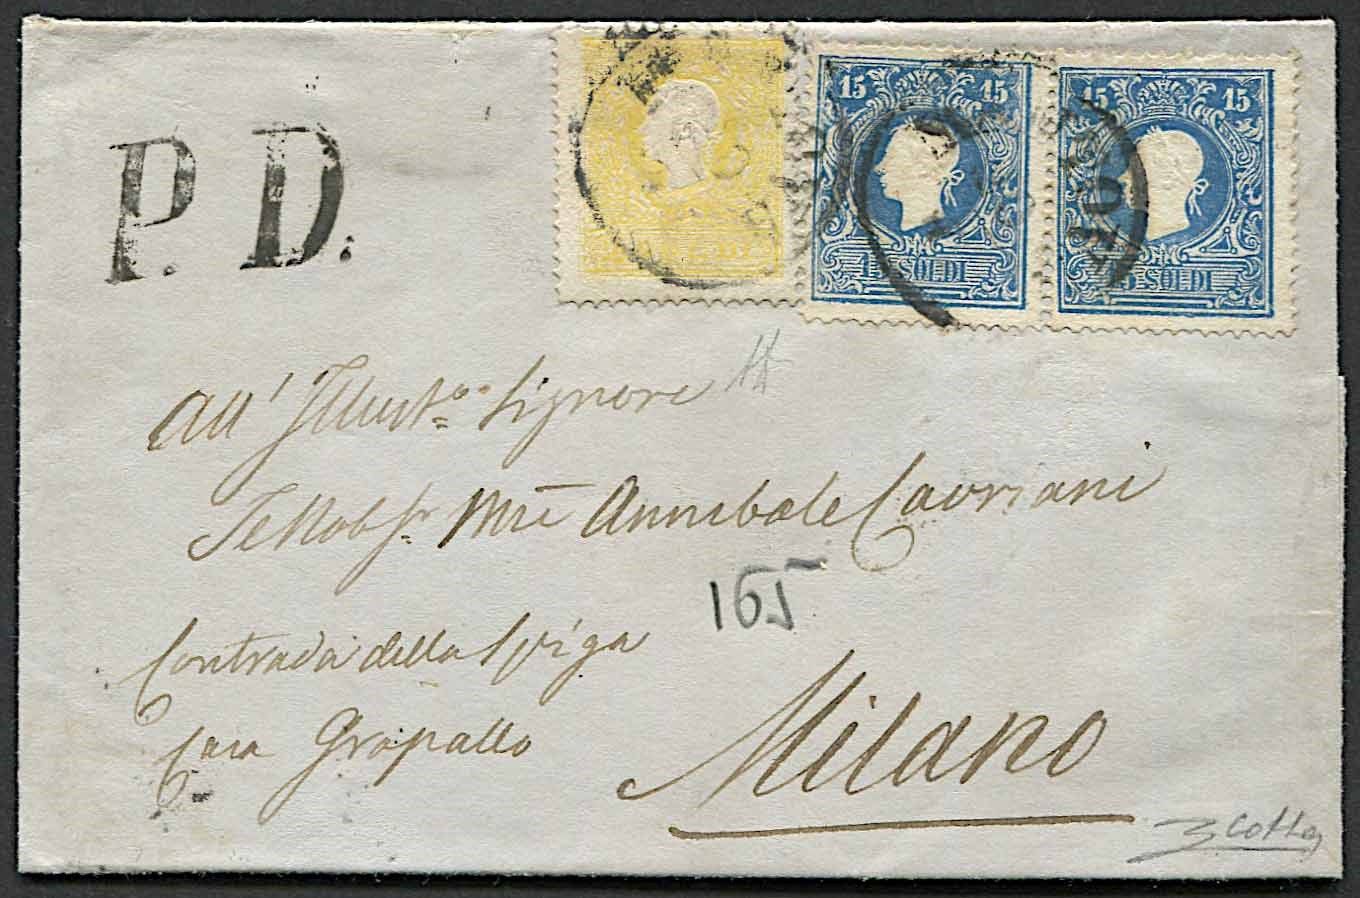 P. D.
15 15
15 15
15 SOLDI
15 SOLDI
All' Illust.º Signore
Il Nob. Sr. Mse Annibale Cavriani
165
Contrada della Spiga
Casa Gropallo
Milano